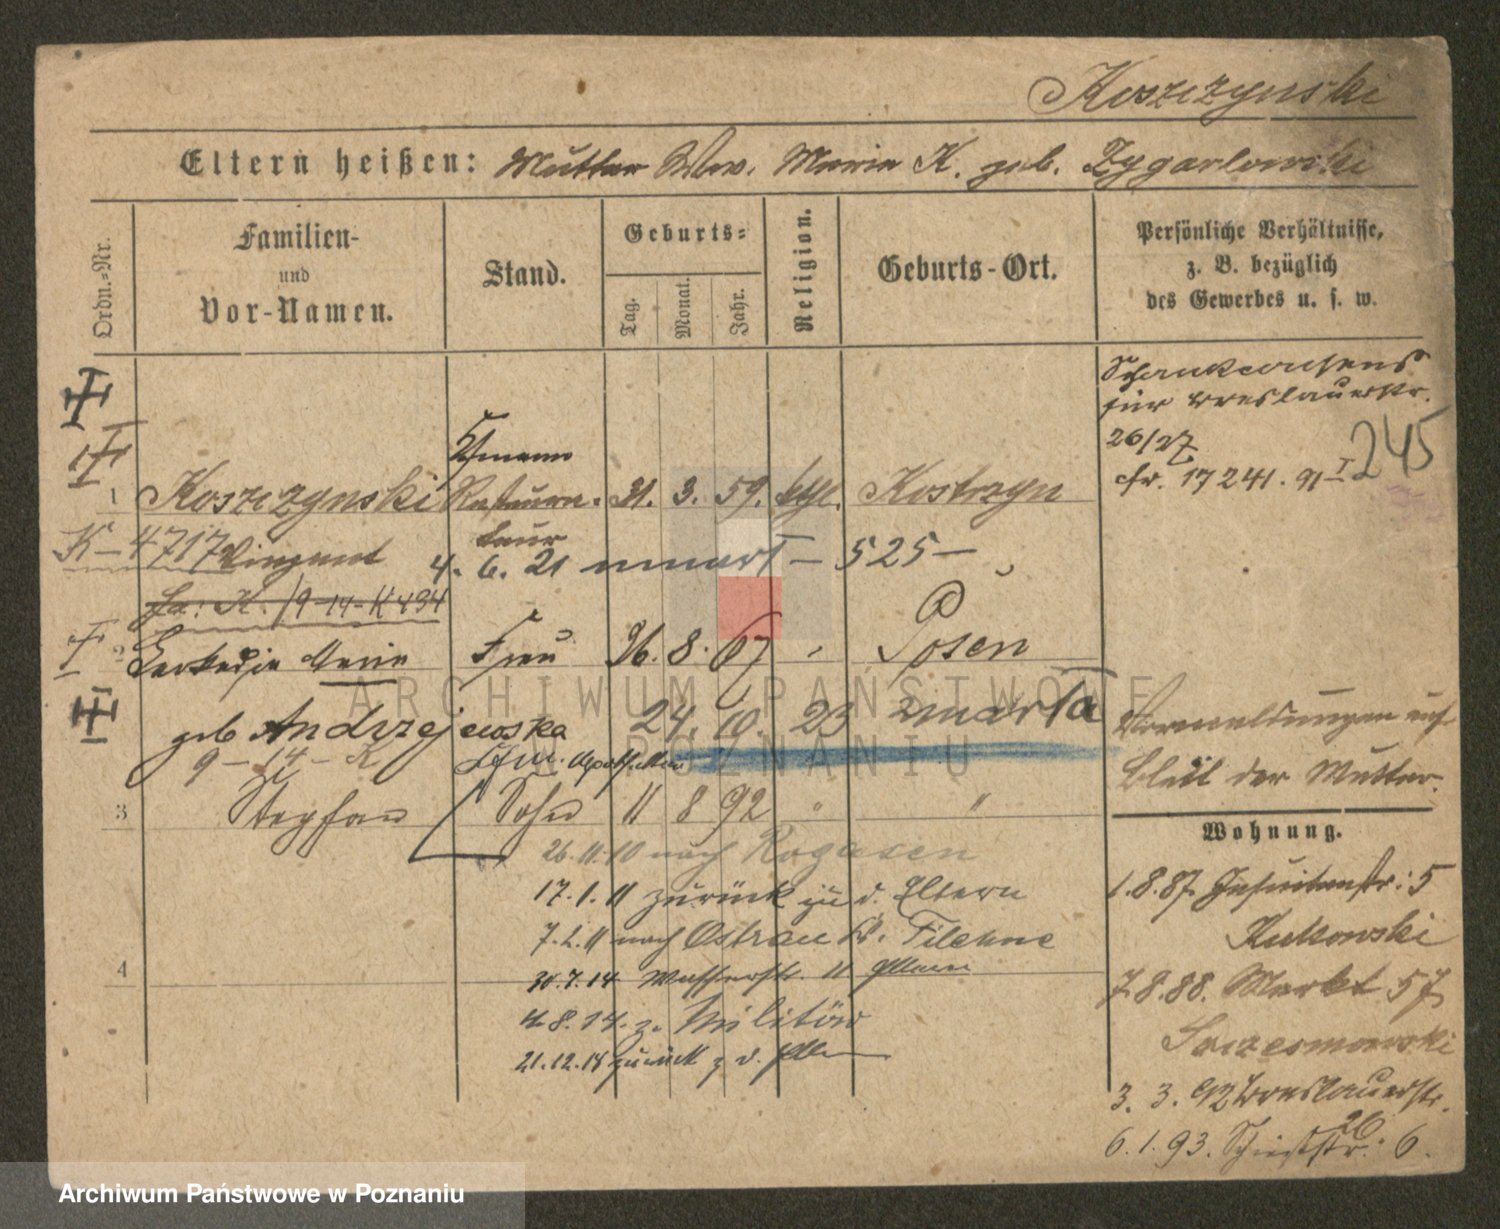 Koszczynski
Eltern heißen: Mutter Ww. Maria K. geb. Zygarlowski
Ordn.-Nr.
Familien-
und
Vor-Namen.
Stand.
Geburts-
Tag.
Monat.
Jahr.
Religion.
Geburts-Ort.
Persönliche Verhältnisse,
z. B. bezüglich
des Gewerbes u. s. w.
Schankconsens
für Breslauerstr.
26/27
cfr. 17241. 91 I
245
Kfmann
1 Koszczynski Restaura- 31. 3. 59. kthl. Kostrzyn
teur
K-4717 Vinzent 4. 6. 21 zmarł - 525 -
fa: K. 19-14-K 494
2 Leokadja Maria Frau 26. 8. 67 " Posen
geb Andrzejewska 24. 10. 23 zmarła
9-14-K
3 Stephan Sohn 11 8 92 " "
26.11.10 nach Rogasen
17.1.11 zurück zu d. Eltern
7.2.11 nach Ostrau K. Filehne
4
30.7.14 Wasserstr. 11 Eltern
4.8.14. z. Militär
21.12.18 zurück z d. Eltern
Vormeldungen auf
Blatt der Mutter.
Wohnung.
1.8.87. Jesuitenstr: 5
Kukowski
7.8.88. Markt 57
3. 3. 92 Breslauerstr.
26
6.1.93. Schießstr. 6.
ARCHIWUM PAŃSTWOWE
W POZNANIU
Archiwum Państwowe w Poznaniu